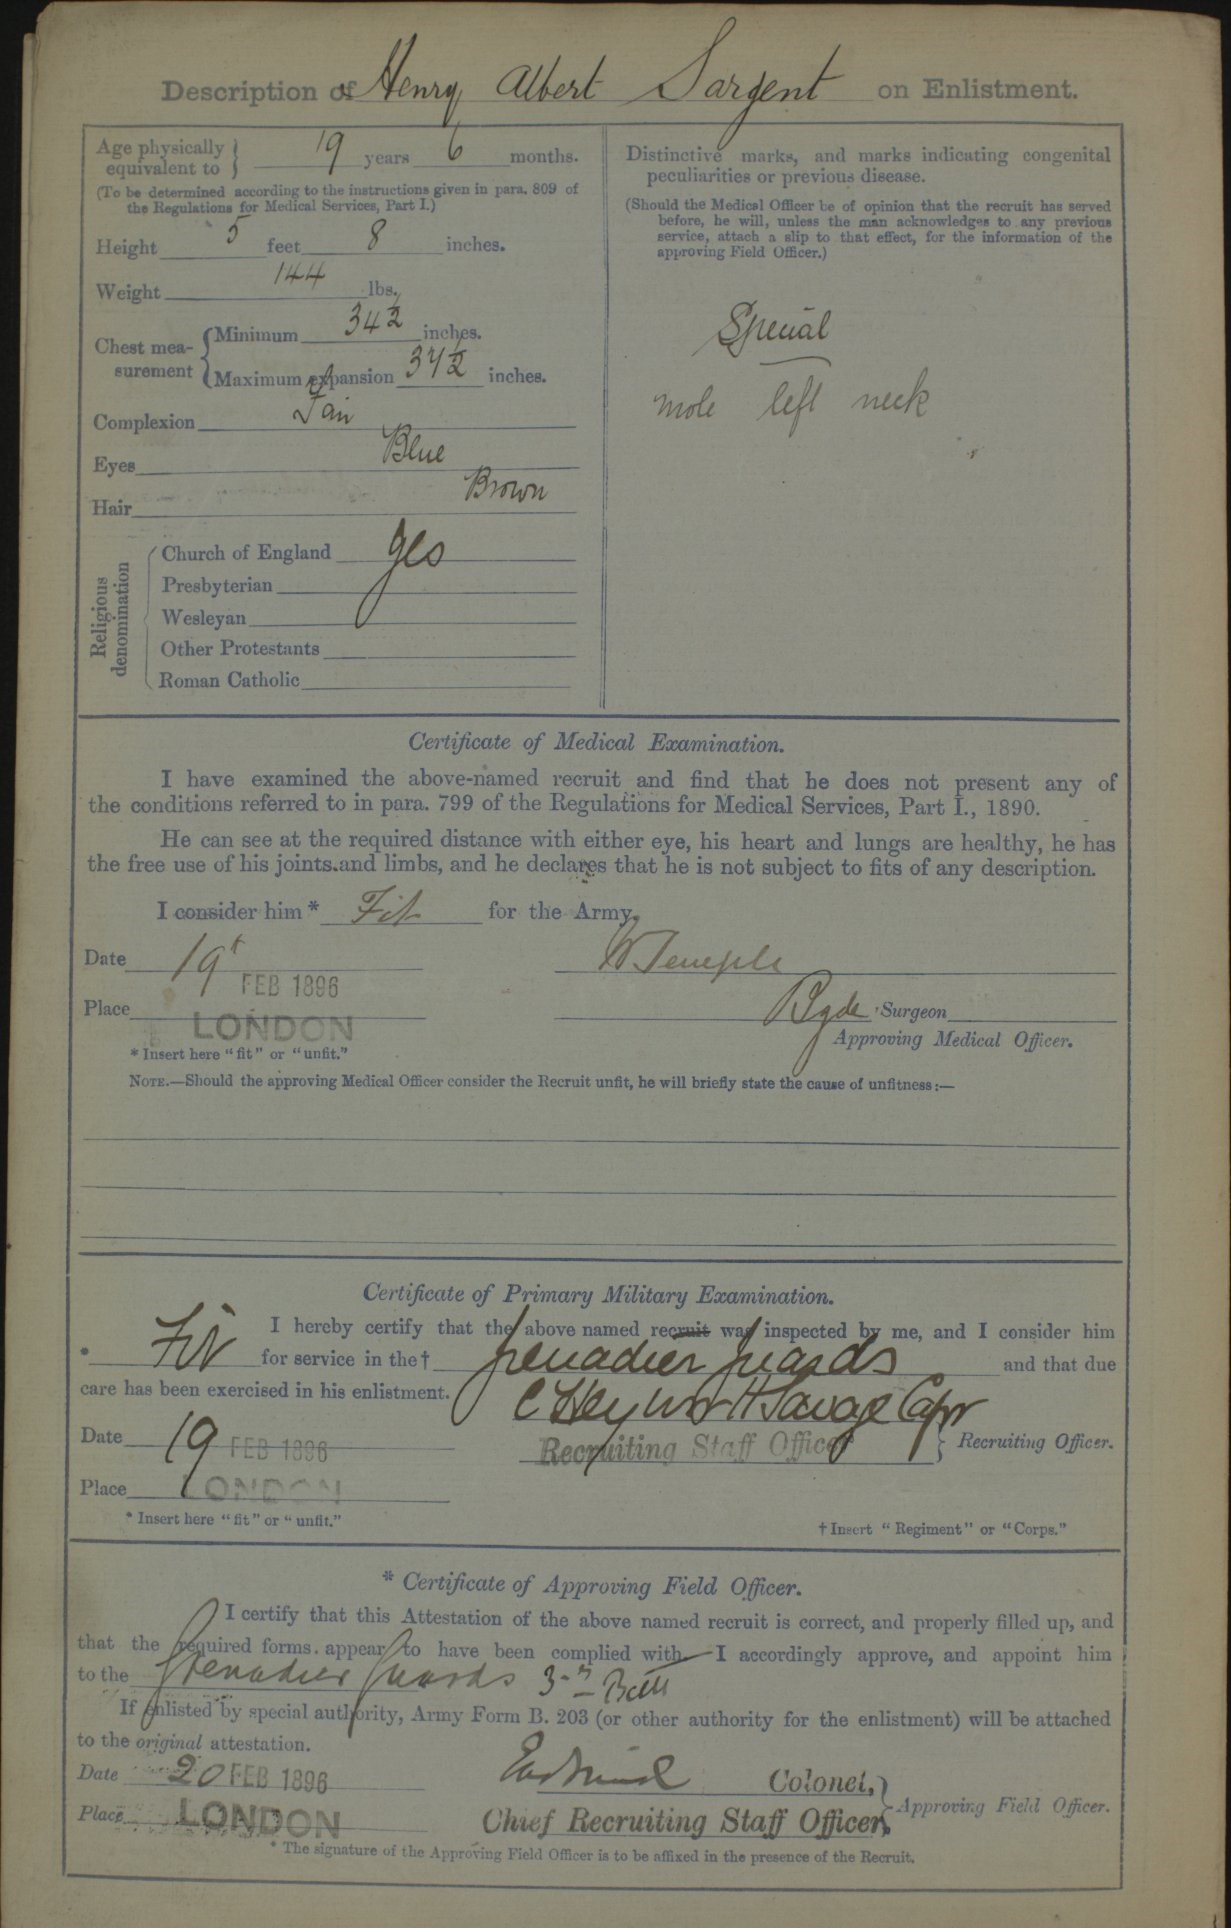 Description of Henry Albert Sargent on Enlistment.
Age physically equivalent to } 19 years 6 months.
(To be determined according to the instructions given in para. 809 of
the Regulations for Medical Services, Part I.)
Height 5 feet 8 inches.
Weight 144 lbs.
Chest mea-surement { Minimum 34 1/2 inches.
Maximum expansion 37 1/2 inches.
Complexion Fair
Eyes Blue
Hair Brown
Religious denomination
Church of England yes
Presbyterian
Wesleyan
Other Protestants
Roman Catholic
Distinctive marks, and marks indicating congenital
peculiarities or previous disease.
(Should the Medical Officer be of opinion that the recruit has served
before, he will, unless the man acknowledges to any previous
service, attach a slip to that effect, for the information of the
approving Field Officer.)
Special
mole left neck
Certificate of Medical Examination.
I have examined the above-named recruit and find that he does not present any of
the conditions referred to in para. 799 of the Regulations for Medical Services, Part I., 1890.
He can see at the required distance with either eye, his heart and lungs are healthy, he has
the free use of his joints and limbs, and he declares that he is not subject to fits of any description.
I consider him * Fit for the Army.
Date 19 FEB 1896 W Temple
Place LONDON Bgde Surgeon
Approving Medical Officer.
* Insert here "fit" or "unfit."
NOTE.—Should the approving Medical Officer consider the Recruit unfit, he will briefly state the cause of unfitness:—
Certificate of Primary Military Examination.
I hereby certify that the above named recruit was inspected by me, and I consider him
* Fit for service in the † Grenadier Guards and that due
care has been exercised in his enlistment.
C Heyworth Savage Capt
Date 19 FEB 1896 Recruiting Staff Officer } Recruiting Officer.
Place LONDON
* Insert here "fit" or "unfit."
† Insert "Regiment" or "Corps."
* Certificate of Approving Field Officer.
I certify that this Attestation of the above named recruit is correct, and properly filled up, and
that the required forms appear to have been complied with. I accordingly approve, and appoint him
to the Grenadier Guards 3rd Batt
If enlisted by special authority, Army Form B. 203 (or other authority for the enlistment) will be attached
to the original attestation.
Date 20 FEB 1896 Colonel, }
Place LONDON Chief Recruiting Staff Officer, Approving Field Officer.
* The signature of the Approving Field Officer is to be affixed in the presence of the Recruit.